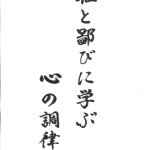 と鄙びに学ぶ
心の調律